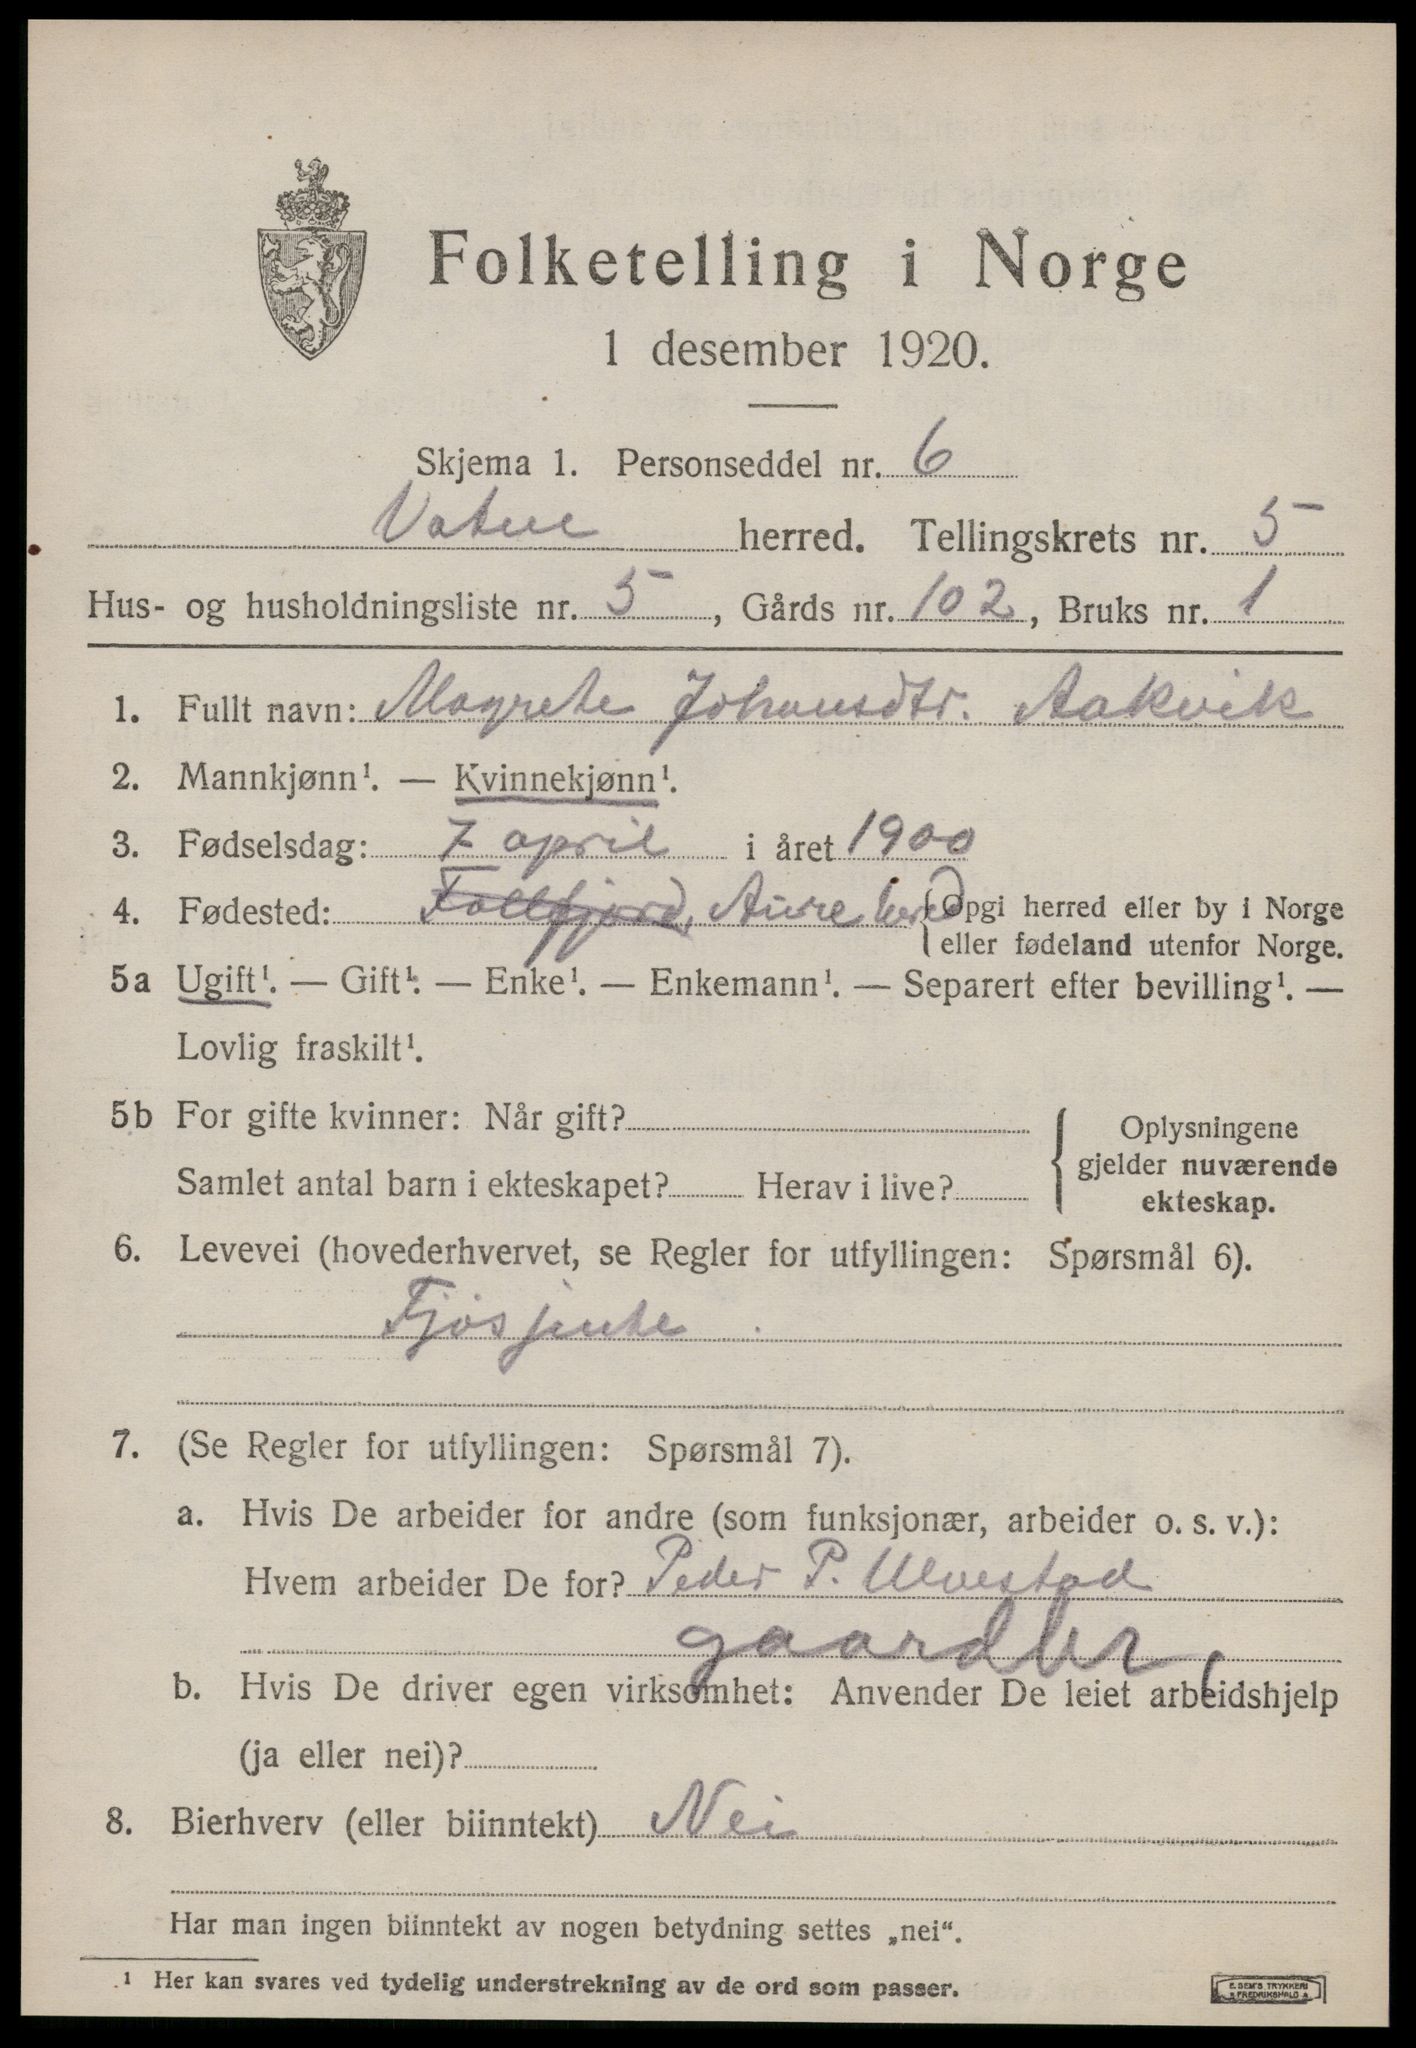 Folketelling i Norge
1 desember 1920.
Skjema 1. Personseddel nr. 6
Vatne herred. Tellingskrets nr. 5
Hus- og husholdningsliste nr. 5, Gårds nr. 102, Bruks nr. 1
1. Fullt navn: Magrete Johansdtr. Aakvik
2. Mannkjønn¹. — Kvinnekjønn¹.
3. Fødselsdag: 7 april i året 1900
4. Fødested: Follfjord, Aure herred {Opgi herred eller by i Norge
eller fødeland utenfor Norge.
5a Ugift¹. — Gift¹. — Enke¹. — Enkemann¹. — Separert efter bevilling¹. —
Lovlig fraskilt¹.
5b For gifte kvinner: Når gift?
Samlet antal barn i ekteskapet? Herav i live?
{ Oplysningene
gjelder nuværende
ekteskap.
6. Levevei (hovederhvervet, se Regler for utfyllingen: Spørsmål 6).
Fjøsjente
7. (Se Regler for utfyllingen: Spørsmål 7).
a. Hvis De arbeider for andre (som funksjonær, arbeider o. s. v.):
Hvem arbeider De for? Peder P. Ulvestad
gaardbr,
b. Hvis De driver egen virksomhet: Anvender De leiet arbeidshjelp
(ja eller nei)?
8. Bierhverv (eller biinntekt) Nei
Har man ingen biinntekt av nogen betydning settes „nei“.
¹ Her kan svares ved tydelig understrekning av de ord som passer.
E. SEM'S TRYKKERI
FREDRIKSHALD